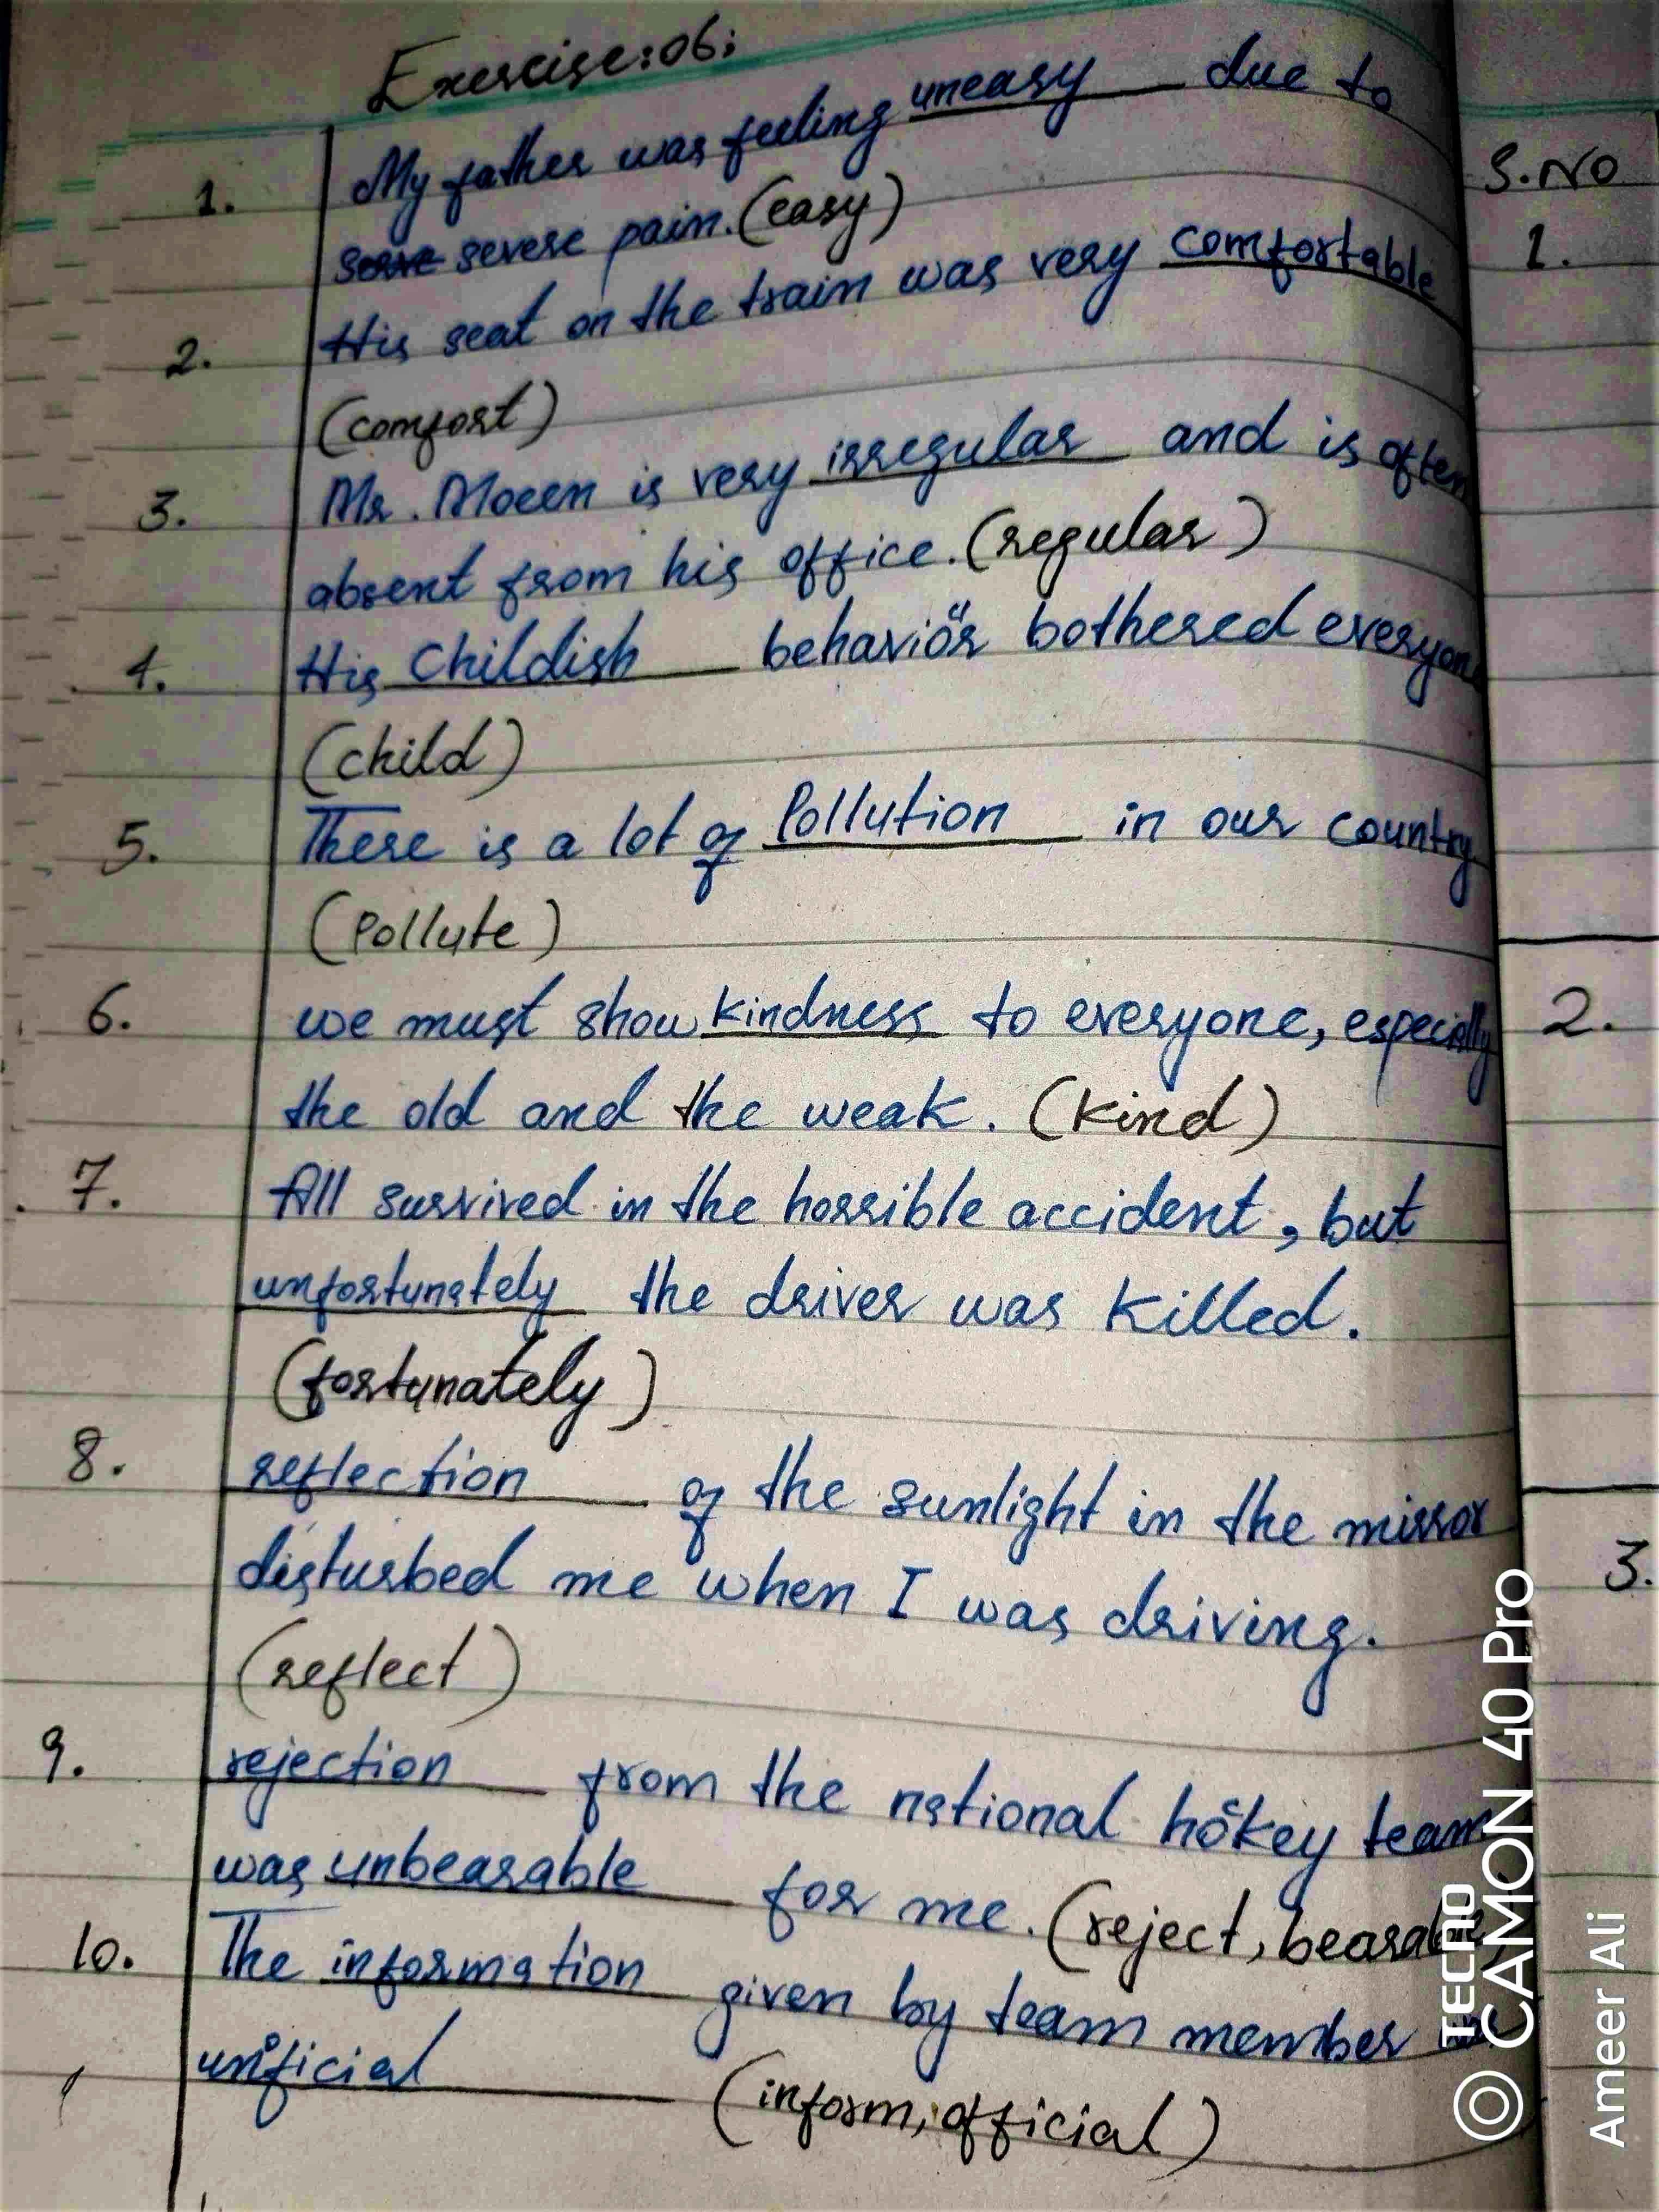 Exercise:06:
1. My father was feeling uneasy due to
severe pain. (easy)
2. His seat on the train was very comfortable
(comfort)
3. Mr. Moeen is very irregular and is often
absent from his office. (regular)
4. His Childish behaviour bothered everyone
(child)
5. There is a lot of Pollution in our country
(Pollute)
6. we must show kindness to everyone, especially
the old and the weak. (Kind)
7. All survived in the horrible accident, but
unfortunately the driver was killed.
(fortunately)
8. reflection of the sunlight in the mirror
disturbed me when I was driving.
(reflect)
9. rejection from the national hockey team
was unbearable for me. (reject, bearable
10. The information given by team member
unoficial (inform, official)
S.NO
1.
2.
3.
TECNO
CAMON 40 Pro
Ameer Ali